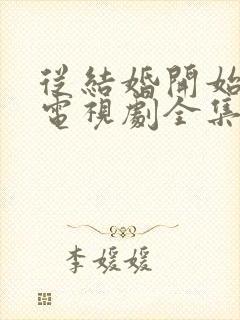 從結婚開始
電視劇全集
李媛媛